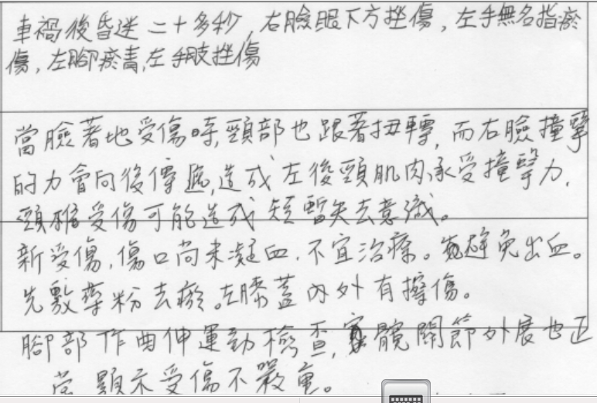 車禍後昏迷二十多秒,右臉眼下方挫傷,左手無名指瘀
傷,左腳瘀青,左手肢挫傷
當臉著地受傷時,頸部也跟著扭轉,而右臉撞擊
的力會向後傳遞,造成左後頸肌肉承受撞擊力,
頸椎受傷可能造成短暫失去意識。
新受傷,傷口尚未凝血,不宜治療。避免出血。
先敷藥粉去瘀。左膝蓋內外有擦傷。
腳部作曲伸運動檢查,髖關節外展也正
常顯示受傷不嚴重。